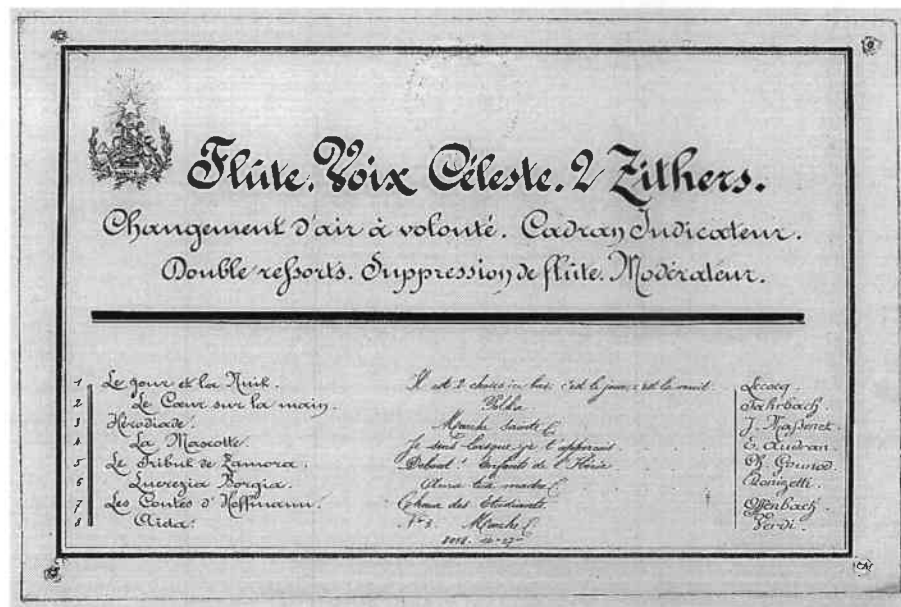 Flûte. Voix Céleste. 2 Zithers.
Changement d'air à volonté. Cadran Indicateur.
Double ressorts. Suppression de flûte. Modérateur.
1 Le Jour et la Nuit. Il est 2 choses ici bas: c'est le jour, c'est la nuit. Lecocq.
2 Le Cœur sur la main. Polka Fahrbach.
3 Hérodiade. Marche Sainte J. Massenet.
4 La Mascotte. Je sens lorsque je t'aperçois E. Audran
5 Le Tribut de Zamora. Debout! Enfants de l'Ibérie Ch. Gounod.
6 Lucrezia Borgia. Donizetti.
7 Les Contes d'Hoffmann. Chœur des Etudiants. Offenbach.
8 Aida. Marche Verdi.